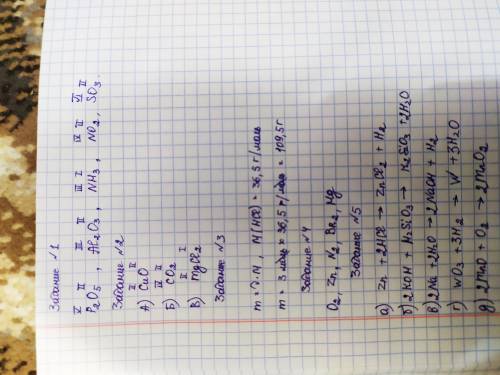 Задание №1
V II III II III I IV II VI II
P₂O₅, Al₂O₃, NH₃, NO₂, SO₃.
Задание №2
II II
А) CuO
IV II
Б) CO₂
II I
В) MgCl₂
Задание №3
m = ν·M, M(HCl) = 36,5 г/моль
m = 3 моль × 36,5 г/моль = 109,5 г
Задание №4
O₂, Zn, N₂, BR₂, Mg
Задание №5
а) Zn + 2HCl → ZnCl₂ + H₂
б) 2KOH + H₂SiO₃ → K₂SiO₃ + 2H₂O
в) 2Na + 2H₂O → 2NaOH + H₂
г) WO₃ + 3H₂ → W + 3H₂O
д) 2MnO + O₂ → 2MnO₂